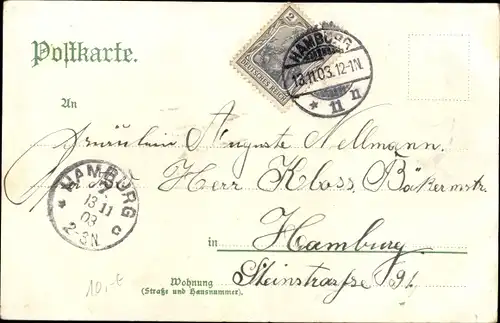 Postkarte.
2
DEUTSCHES REICH
HAMBURG
13.11.03. 12-1N.
* 11 n
An
Fräulein Auguste Nellmann.
Herr Kloss. Bäkermstr.
HAMBURG
7
13 11
03
2-3N
* c
in Hamburg.
Steinstrasse 91.
Wohnung
(Straße und Hausnummer).
10,-€